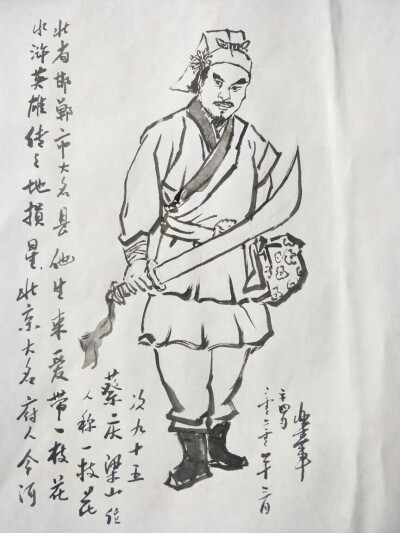 水浒英雄传之地損星北京大名府人今河
北省邯郸市大名县他生来爱带一枝花
人称一枝花
蔡庆梁山位
次九十五
二零二零年二月